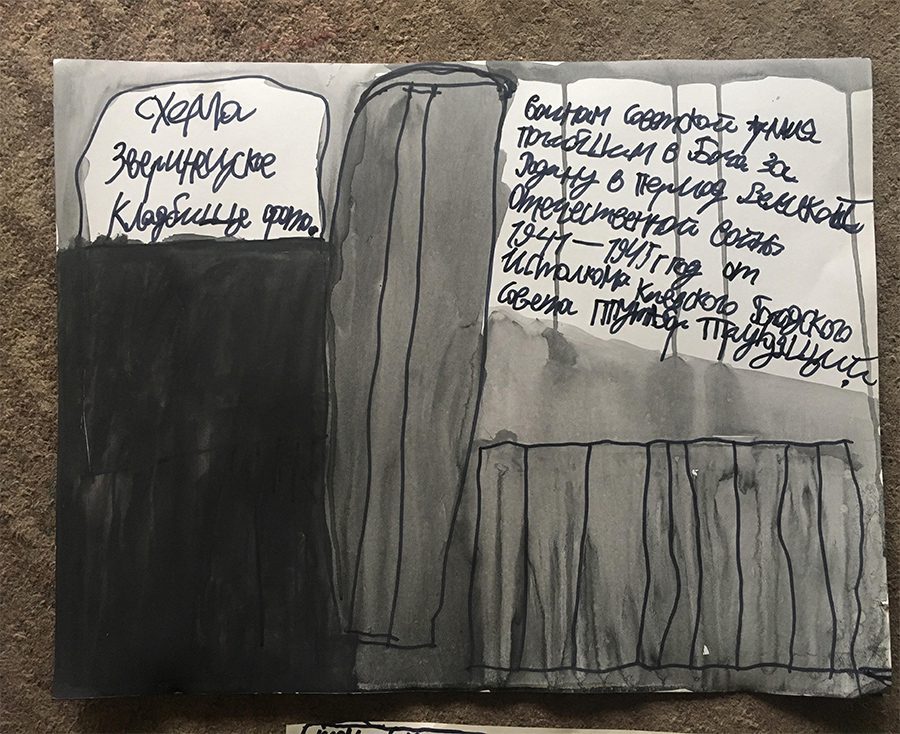 схема
Зверинецское
Кладбище фото.
Воинам Советской
погибшим в за
Родину в период Великой
Отечественной войны
1941 — 1945 г год от
Исполкома Киевского Городского
Совета Трудящий.